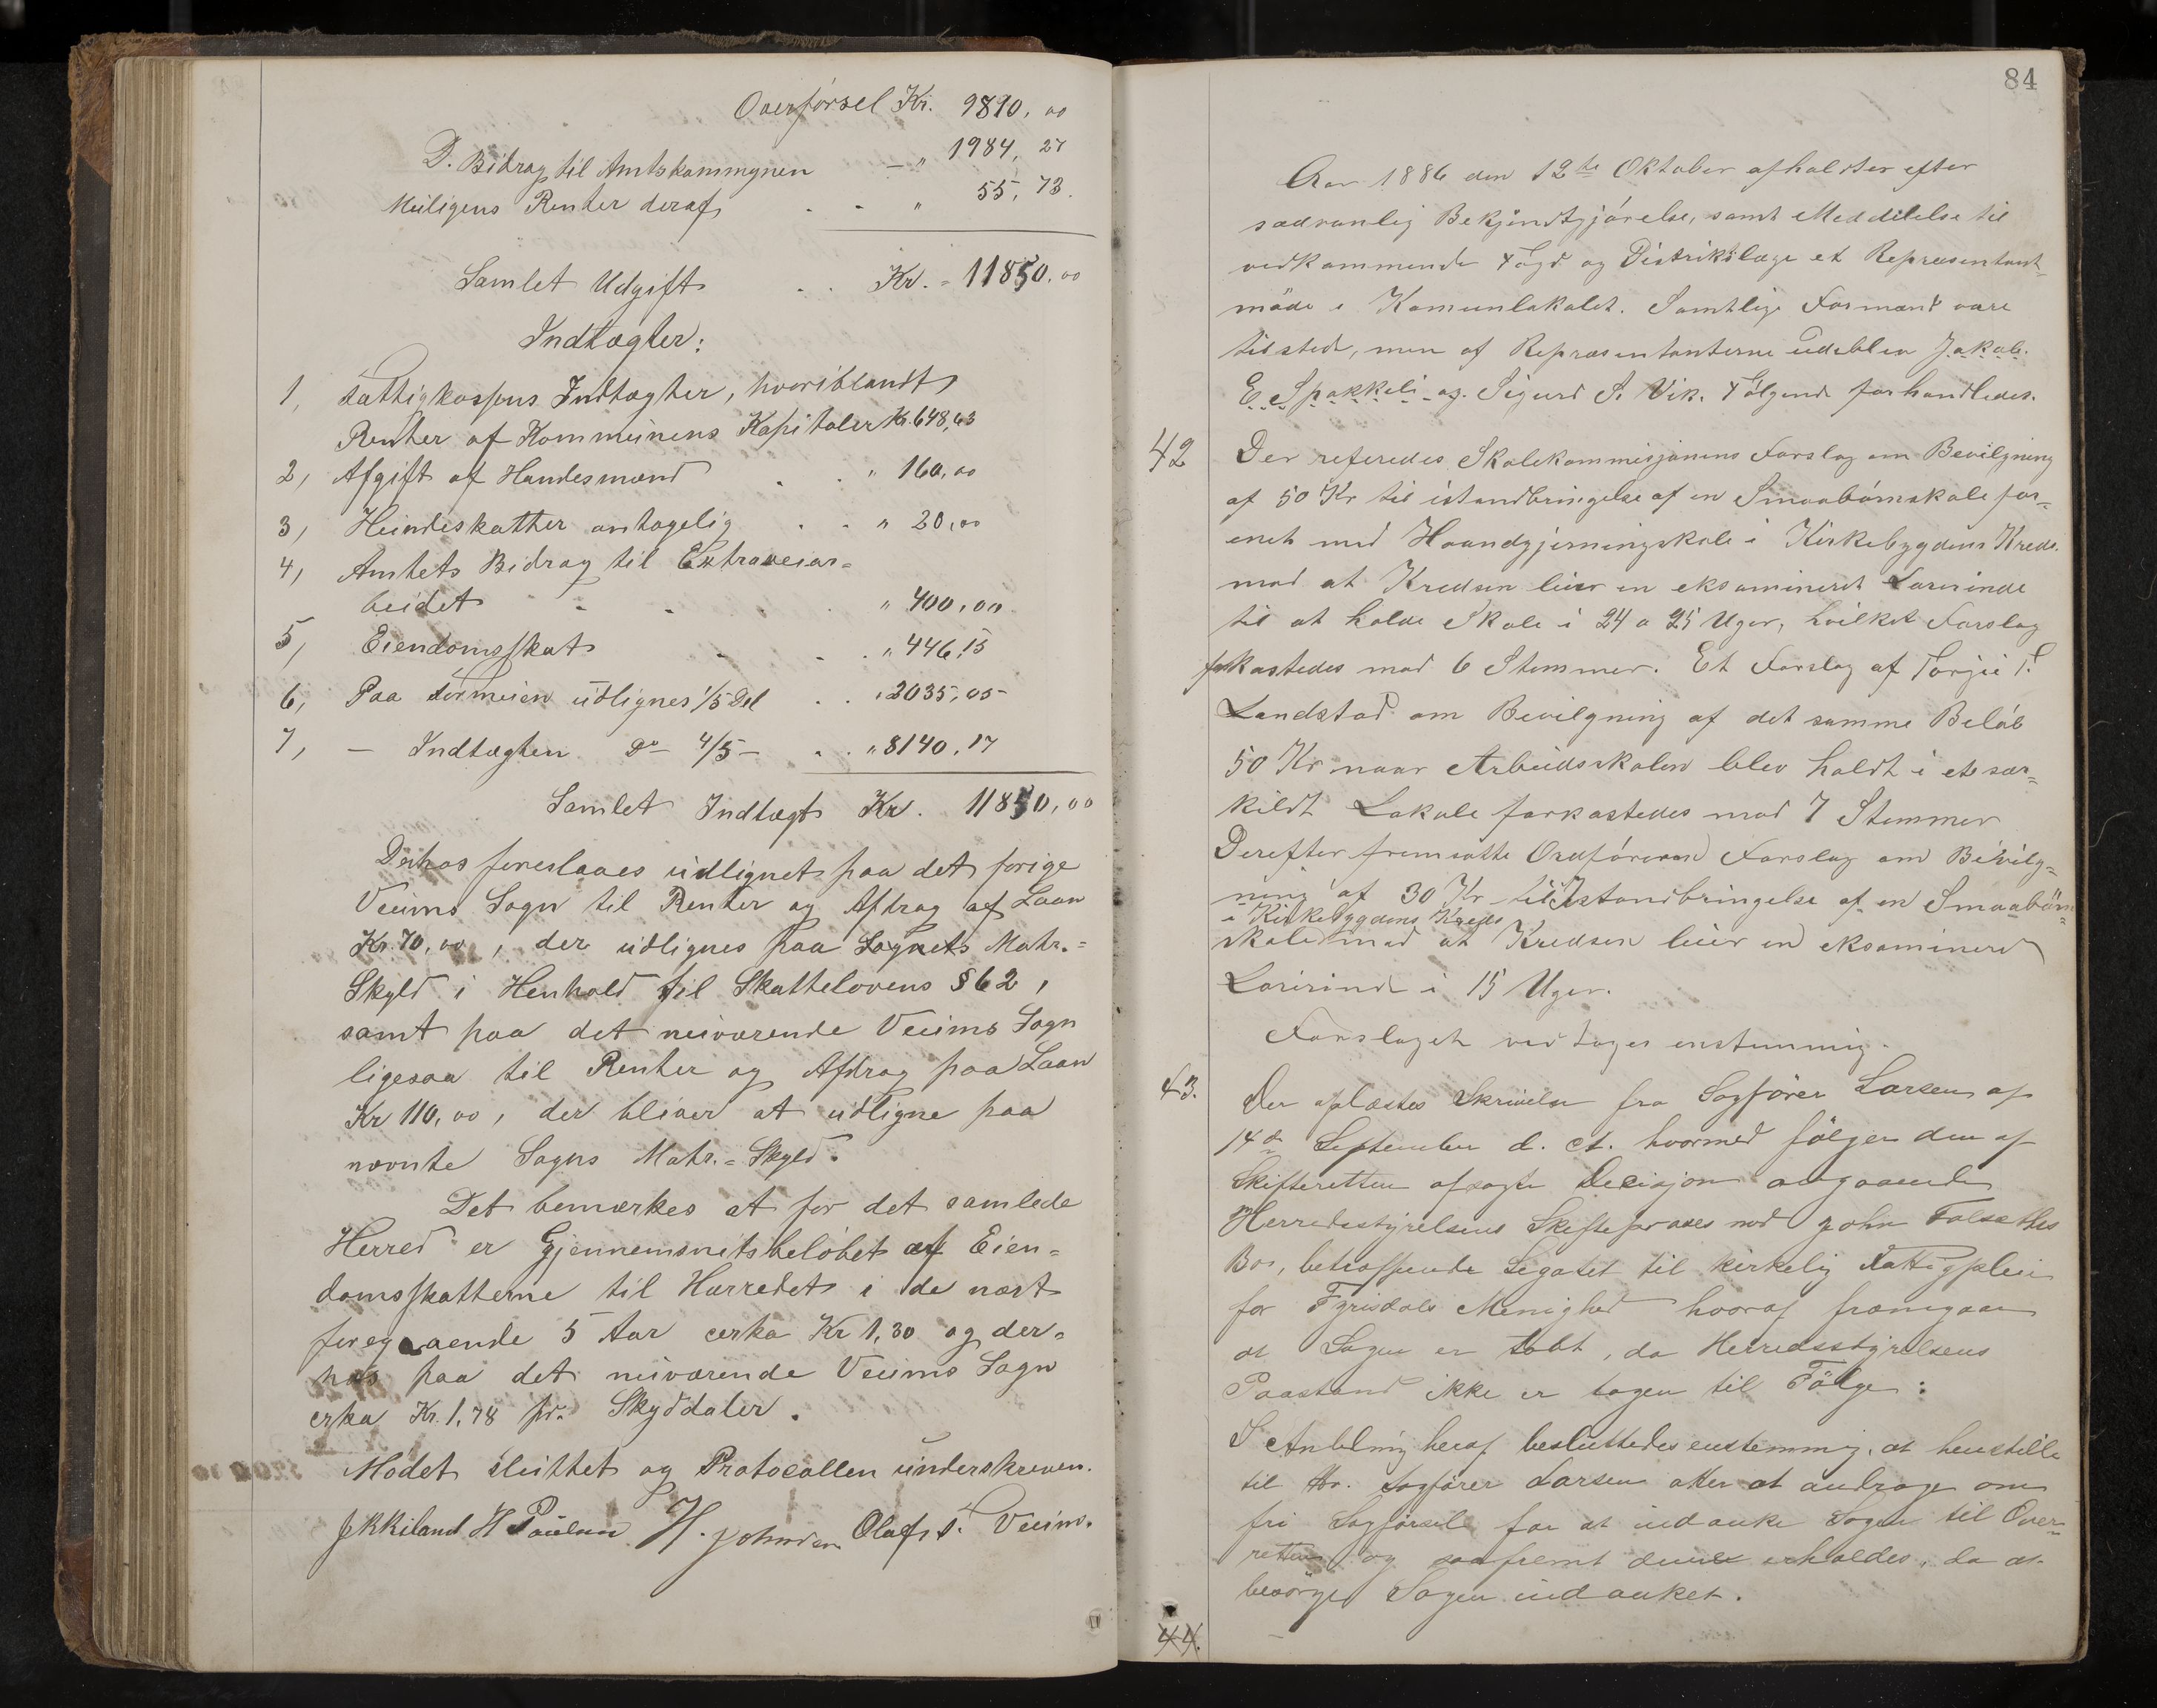 Overførsel Kr. 9890,00
D. Bidrag til Amtskommynen – „ 1984, 27
Muligens Renter deraf . - „ 55, 73.
Samlet Udgift . . Kr. = 11850.00
Indtægter:
1, Fattigkassens Indtægter, hvoriblandt
Renter af Kommunens Kapitaler Kr. 648,63
2, Afgift af Handesmænd . . „ 160,00
3, Hundeskatter antagelig . . „ 20,00
4, Amtets Bidrag til Extraveiar=
beidet - - . „ 400,00
5, Eiendomsskat . . . „ 446,15
6, Paa Formuen udlignes 1/5 Del . . „ 2035,05
7, – Indtægten Do 4/5 – . . „ 8140,17
Samlet Indtægt Kr. 11850,00
Derhos foreslaaes udlignet paa det forige
Veums Sogn til Renter og Afdrag af Laan
Kr. 70,00, der udlignes paa Sognets Matr.=
Skyld i Henhold til Skattelovens § 62,
samt paa det nuværende Veums Sogn
ligesaa til Renter og Afdrag paa Laan
Kr 110,00, der bliver at udligne paa
nævnte Sogns Matr.=Skyld.
Det bemærkes at for det samlede
Herred er Gjennemsnitsbeløbet af Eien=
domsskatterne til Herredet i de næst
foregaaende 5 Aar cerka Kr 1,30 og der=
hos paa det nuværende Veums Sogn
cerka Kr. 1,78 pr. Skylddaler.
Mødet sluttet og Protocollen underskreven.
H Paulsen H. Johnsen Olaf S. Veum.
84
Aar 1886 den 12te Oktober afholdtes efter
sædvanlig Bekjendtgjørelse, samt Meddelelse til
vedkommende Fogd og Distriktslæge et Repræsentant=
møde i Komunlokalet. Samtlige Formænd vare
tilstede, men af Repræsentanterne udeblev Jakob.
E. Spokkeli og Sigurd S. Vik. Følgende forhandledes.
42 Der referedes Skolekommisjonens Forslag om Bevilgning
af 50 Kr til istandbringelse af en Smaabørnskole for=
enet med Haandgjerningskole i Kirkebygdens Kreds.
mod at Kredsen leier en eksamineret Lærerinde
til at holde Skole i 24 a 25 Uger, hvilket Forslag
forkastedes mod 6 Stemmer. Et Forslag af Torgie T.
Landstad om Bevilgning af det samme Beløb
50 Kr naar Arbeidsskolen blev holdt i et sær=
kildt Lokale forkastedes mod 7 Stemmer
Derefter fremsatte Ordføreren Forslag om Bevilg=
ning af 30 Kr til Istandbringelse af en Smaabørn=
i Kirkebygdens Kreds
skole mod at Kredsen leier en eksamineret
Lærerinde i 15 Uger.
Forslaget vedtoges enstemmig.
43. Der oplæstes Skrivelse fra Sagfører Larsen af
14de September d. A. hvormed følger den af
Skifteretten afsagte Decisjon angaaende
Herredsstyrelsens Skifteproces mod John Folsæthes
Bo, betræffende Legatet til kirkelig Fattigpleie
for Fyrisdals Menighed hvoraf fremgaar
at Sagen er tabt, da Herredsstyrelsens
Paastand ikke er tagen til Følge:
I Anledning heraf besluttedes enstemmig, at henstille
til Hr. Sagfører Larsen atter at andrage om
fri Sagførsel for at indanke Sagen til Over=
retten og saafremt denne erholdes, da at
besørge Sagen indanket.
44.